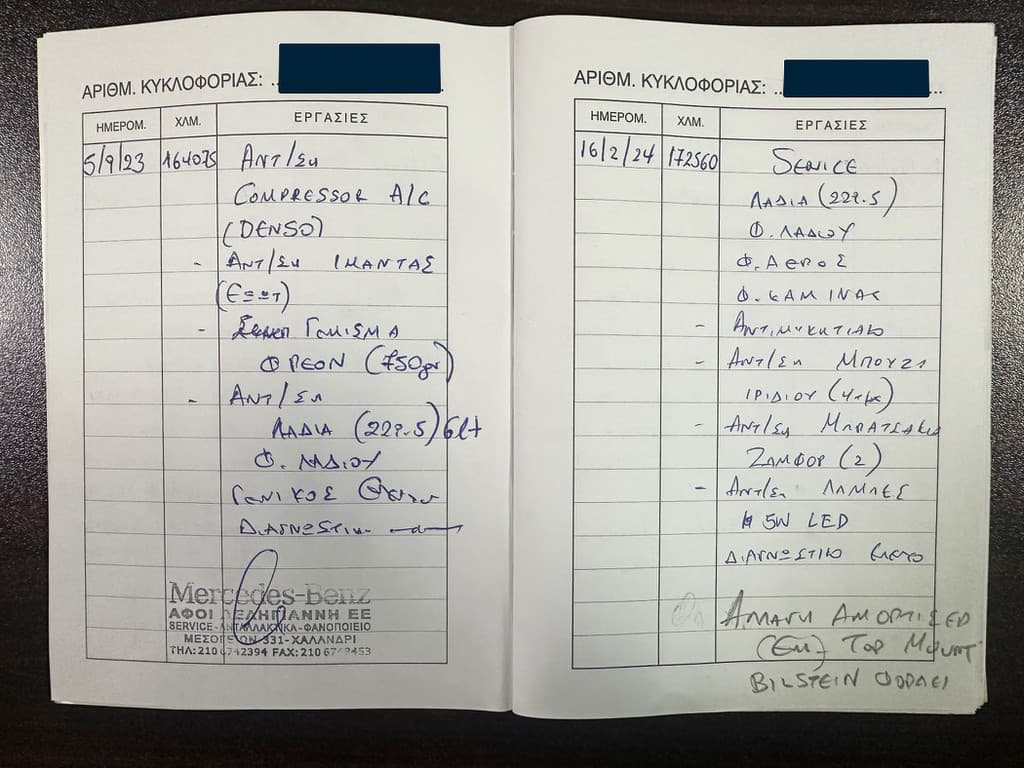 ΑΡΙΘΜ. ΚΥΚΛΟΦΟΡΙΑΣ:
ΗΜΕΡΟΜ. ΧΛΜ. ΕΡΓΑΣΙΕΣ
5/9/23 164075 ΑΝΤ/ΣΗ
COMPRESSOR A/C
(DENSO)
- ΑΝΤ/ΣΗ ΙΜΑΝΤΑΣ
(ΕΞΩΤ)
- ΓΕΜΙΣΜΑ
ΦΡΕΟΝ (750gr)
- ΑΝΤ/ΣΗ
ΛΑΔΙΑ (229.5) 6lt
Φ. ΛΑΔΙΟΥ
ΓΕΝΙΚΟΣ
ΔΙΑΓΝΩΣΤΙΚ
Mercedes-Benz
ΑΦΟΙ ΔΕΛΗΓΙΑΝΝΗ ΕΕ
SERVICE-ΑΝΤΑΛΛΑΚΤΙΚΑ-ΦΑΝΟΠΟΙΕΙΟ
ΜΕΣΟΓΕΙΩΝ 331-ΧΑΛΑΝΔΡΙ
ΤΗΛ: 210 6742394 FAX: 210
ΑΡΙΘΜ. ΚΥΚΛΟΦΟΡΙΑΣ:
ΗΜΕΡΟΜ. ΧΛΜ. ΕΡΓΑΣΙΕΣ
16/2/24 172560 SERVICE
ΛΑΔΙΑ (229.5)
Φ. ΛΑΔΙΟΥ
Φ. ΑΕΡΟΣ
Φ. ΚΑΜΙΝΑΣ
- ΑΝΤΙΜΥΚΗΤΙΑΚΟ
- ΑΝΤ/ΣΗ ΜΠΟΥΖΙ
ΙΡΙΔΙΟΥ (4τμχ)
- ΑΝΤ/ΣΗ ΜΠΡΑΤΣΑΚΙΑ
ΖΑΜΦΟΡ (2)
- ΑΝΤ/ΣΗ ΛΑΜΠΕΣ
5W LED
ΔΙΑΓΝΩΣΤΙΚΟ ΕΛΕΓΧΟ
ΑΛΛΑΓΗ ΑΜΟΡΤΙΣΕΡ
TOP MOUNT
BILSTEIN